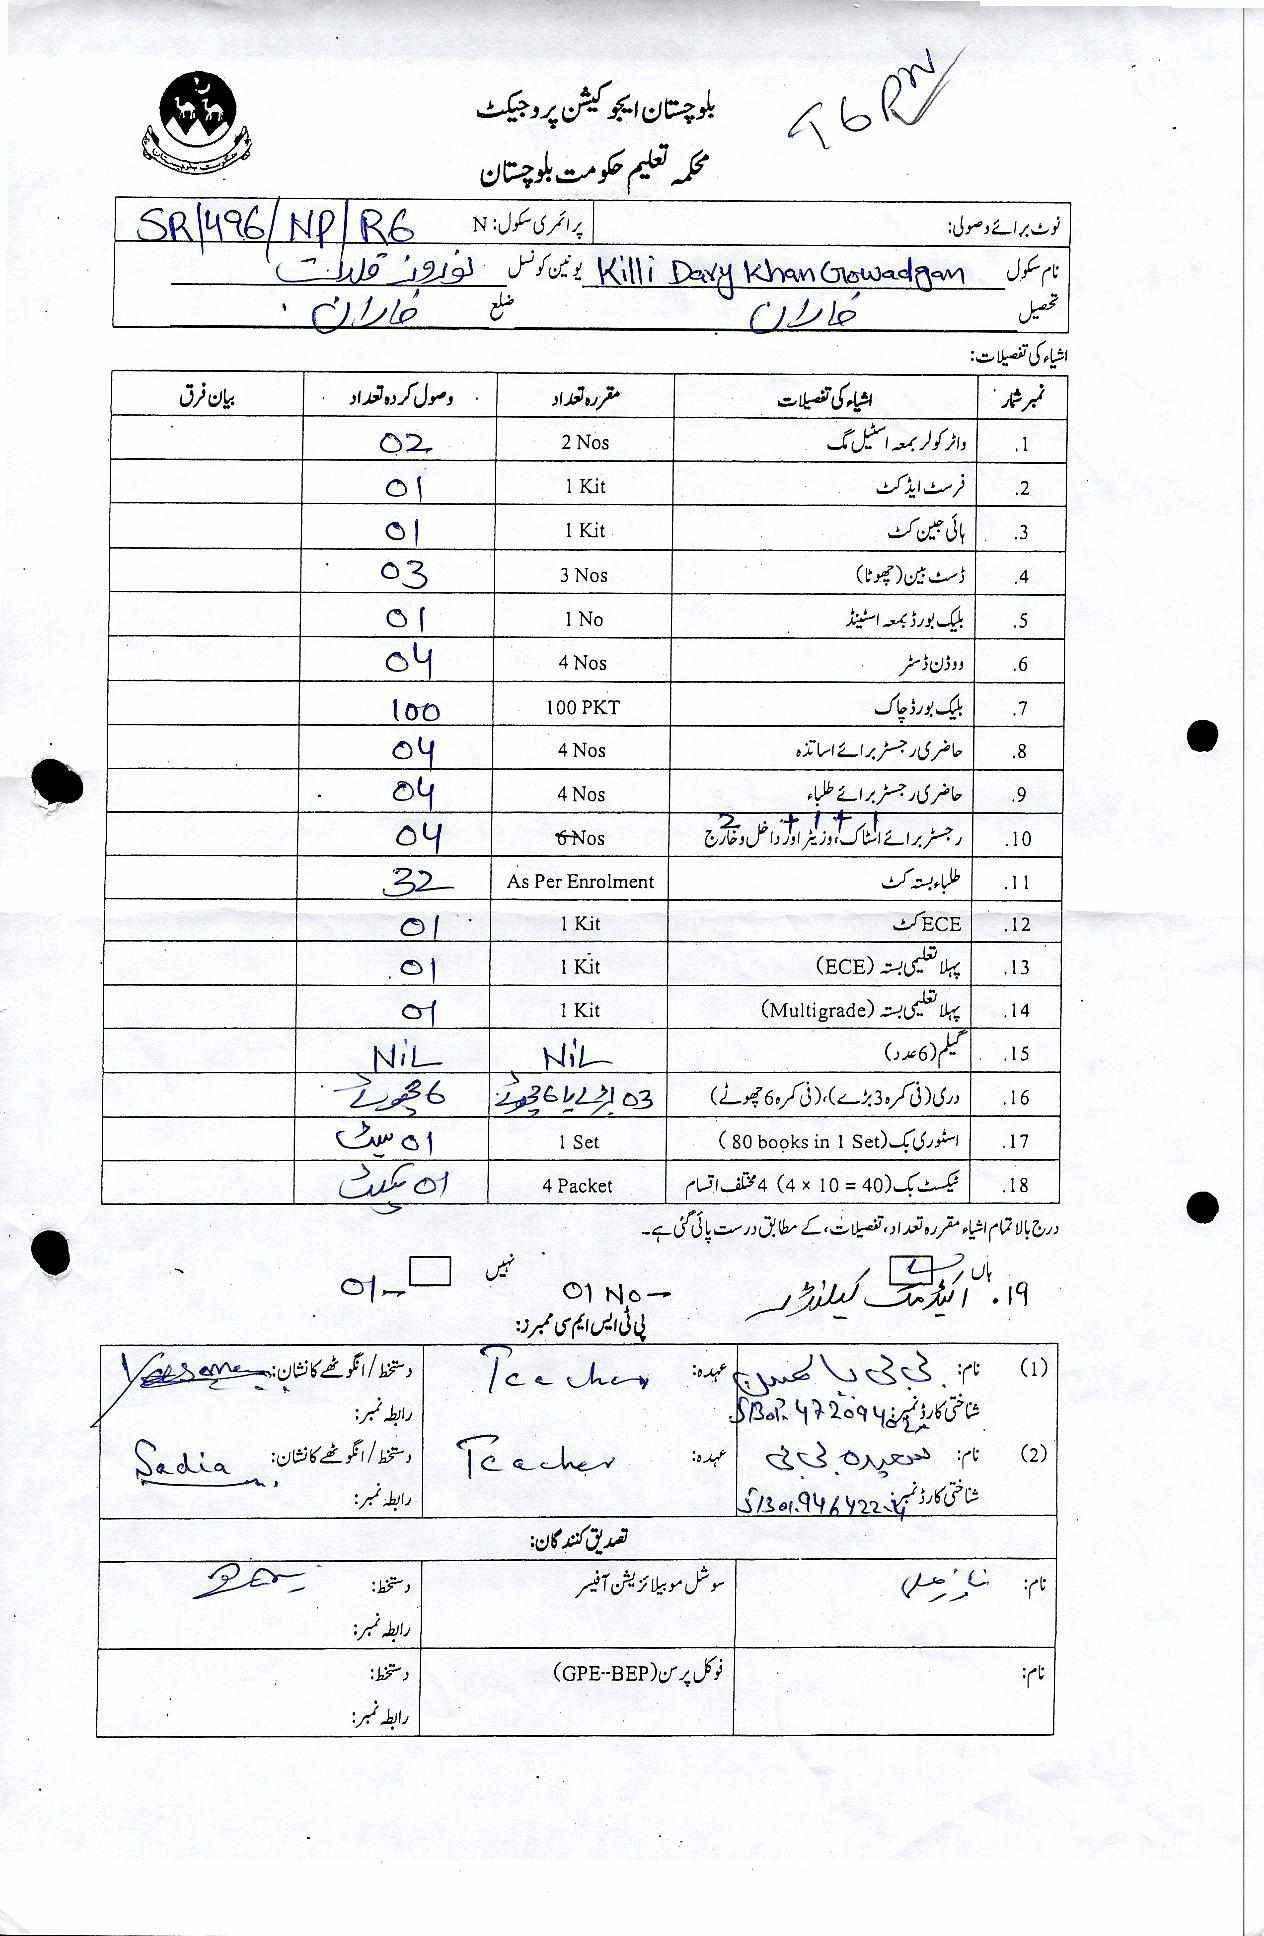 بلوچستان ایجوکیشن پروجیکٹ
محکمہ تعلیم حکومت بلوچستان
نوٹ برائے وصولی: پرائمری سکول: N SR/496/NP/R6
نام سکول Killi Dary Khan Gowadgan یونین کونسل نوروز قلات
تحصیل خاران ضلع خاران
اشیاء کی تفصیلات:
نمبر شمار اشیاء کی تفصیلات مقررہ تعداد وصول کردہ تعداد بیان فرق
.1 واٹر کولر بمعہ اسٹیل مگ 2 Nos 02
.2 فرسٹ ایڈ کٹ 1 Kit 01
.3 ہائی جین کٹ 1 Kit 01
.4 ڈسٹ بین (چھوٹا) 3 Nos 03
.5 بلیک بورڈ بمعہ اسٹینڈ 1 No 01
.6 ووڈن ڈسٹر 4 Nos 04
.7 بلیک بورڈ چاک 100 PKT 100
.8 حاضری رجسٹر برائے اساتذہ 4 Nos 04
.9 حاضری رجسٹر برائے طلباء 4 Nos 04
2 + 1 + 1
.10 رجسٹر برائے اسٹاک، وزیٹر اور داخل و خارج 6 Nos 04
.11 طلباء بستہ کٹ As Per Enrolment 32
.12 ECE کٹ 1 Kit 01
.13 پہلا تعلیمی بستہ (ECE) 1 Kit 01
.14 پہلا تعلیمی بستہ (Multigrade) 1 Kit 01
.15 گیلم (6 عدد) NiL NiL
.16 دری (فی کمرہ 3 بڑے)، (فی کمرہ 6 چھوٹے) 03 بڑے یا 6 چھوٹے 6 چھوٹے
.17 اسٹوری بک (80 books in 1 Set) 1 Set 01 سیٹ
.18 ٹیکسٹ بک (4 × 10 = 40) 4 مختلف اقسام 4 Packet 01 پیکٹ
درج بالا تمام اشیاء مقررہ تعداد، تفصیلات، کے مطابق درست پائی گئی ہے۔
ہاں نہیں
19. اکیڈمک کیلنڈر 01 No 01
پی ٹی ایس ایم سی ممبرز:
(1) نام: بی بی یاسمین عہدہ: Teacher دستخط / انگوٹھے کا نشان:
شناختی کارڈ نمبر: رابطہ نمبر:
(2) نام: سعیدہ بی بی عہدہ: Teacher دستخط / انگوٹھے کا نشان: Sadia
شناختی کارڈ نمبر: رابطہ نمبر:
تصدیق کنندگان:
نام: سوشل موبیلائزیشن آفیسر دستخط:
رابطہ نمبر:
نام: فوکل پرسن (GPE--BEP) دستخط:
رابطہ نمبر: